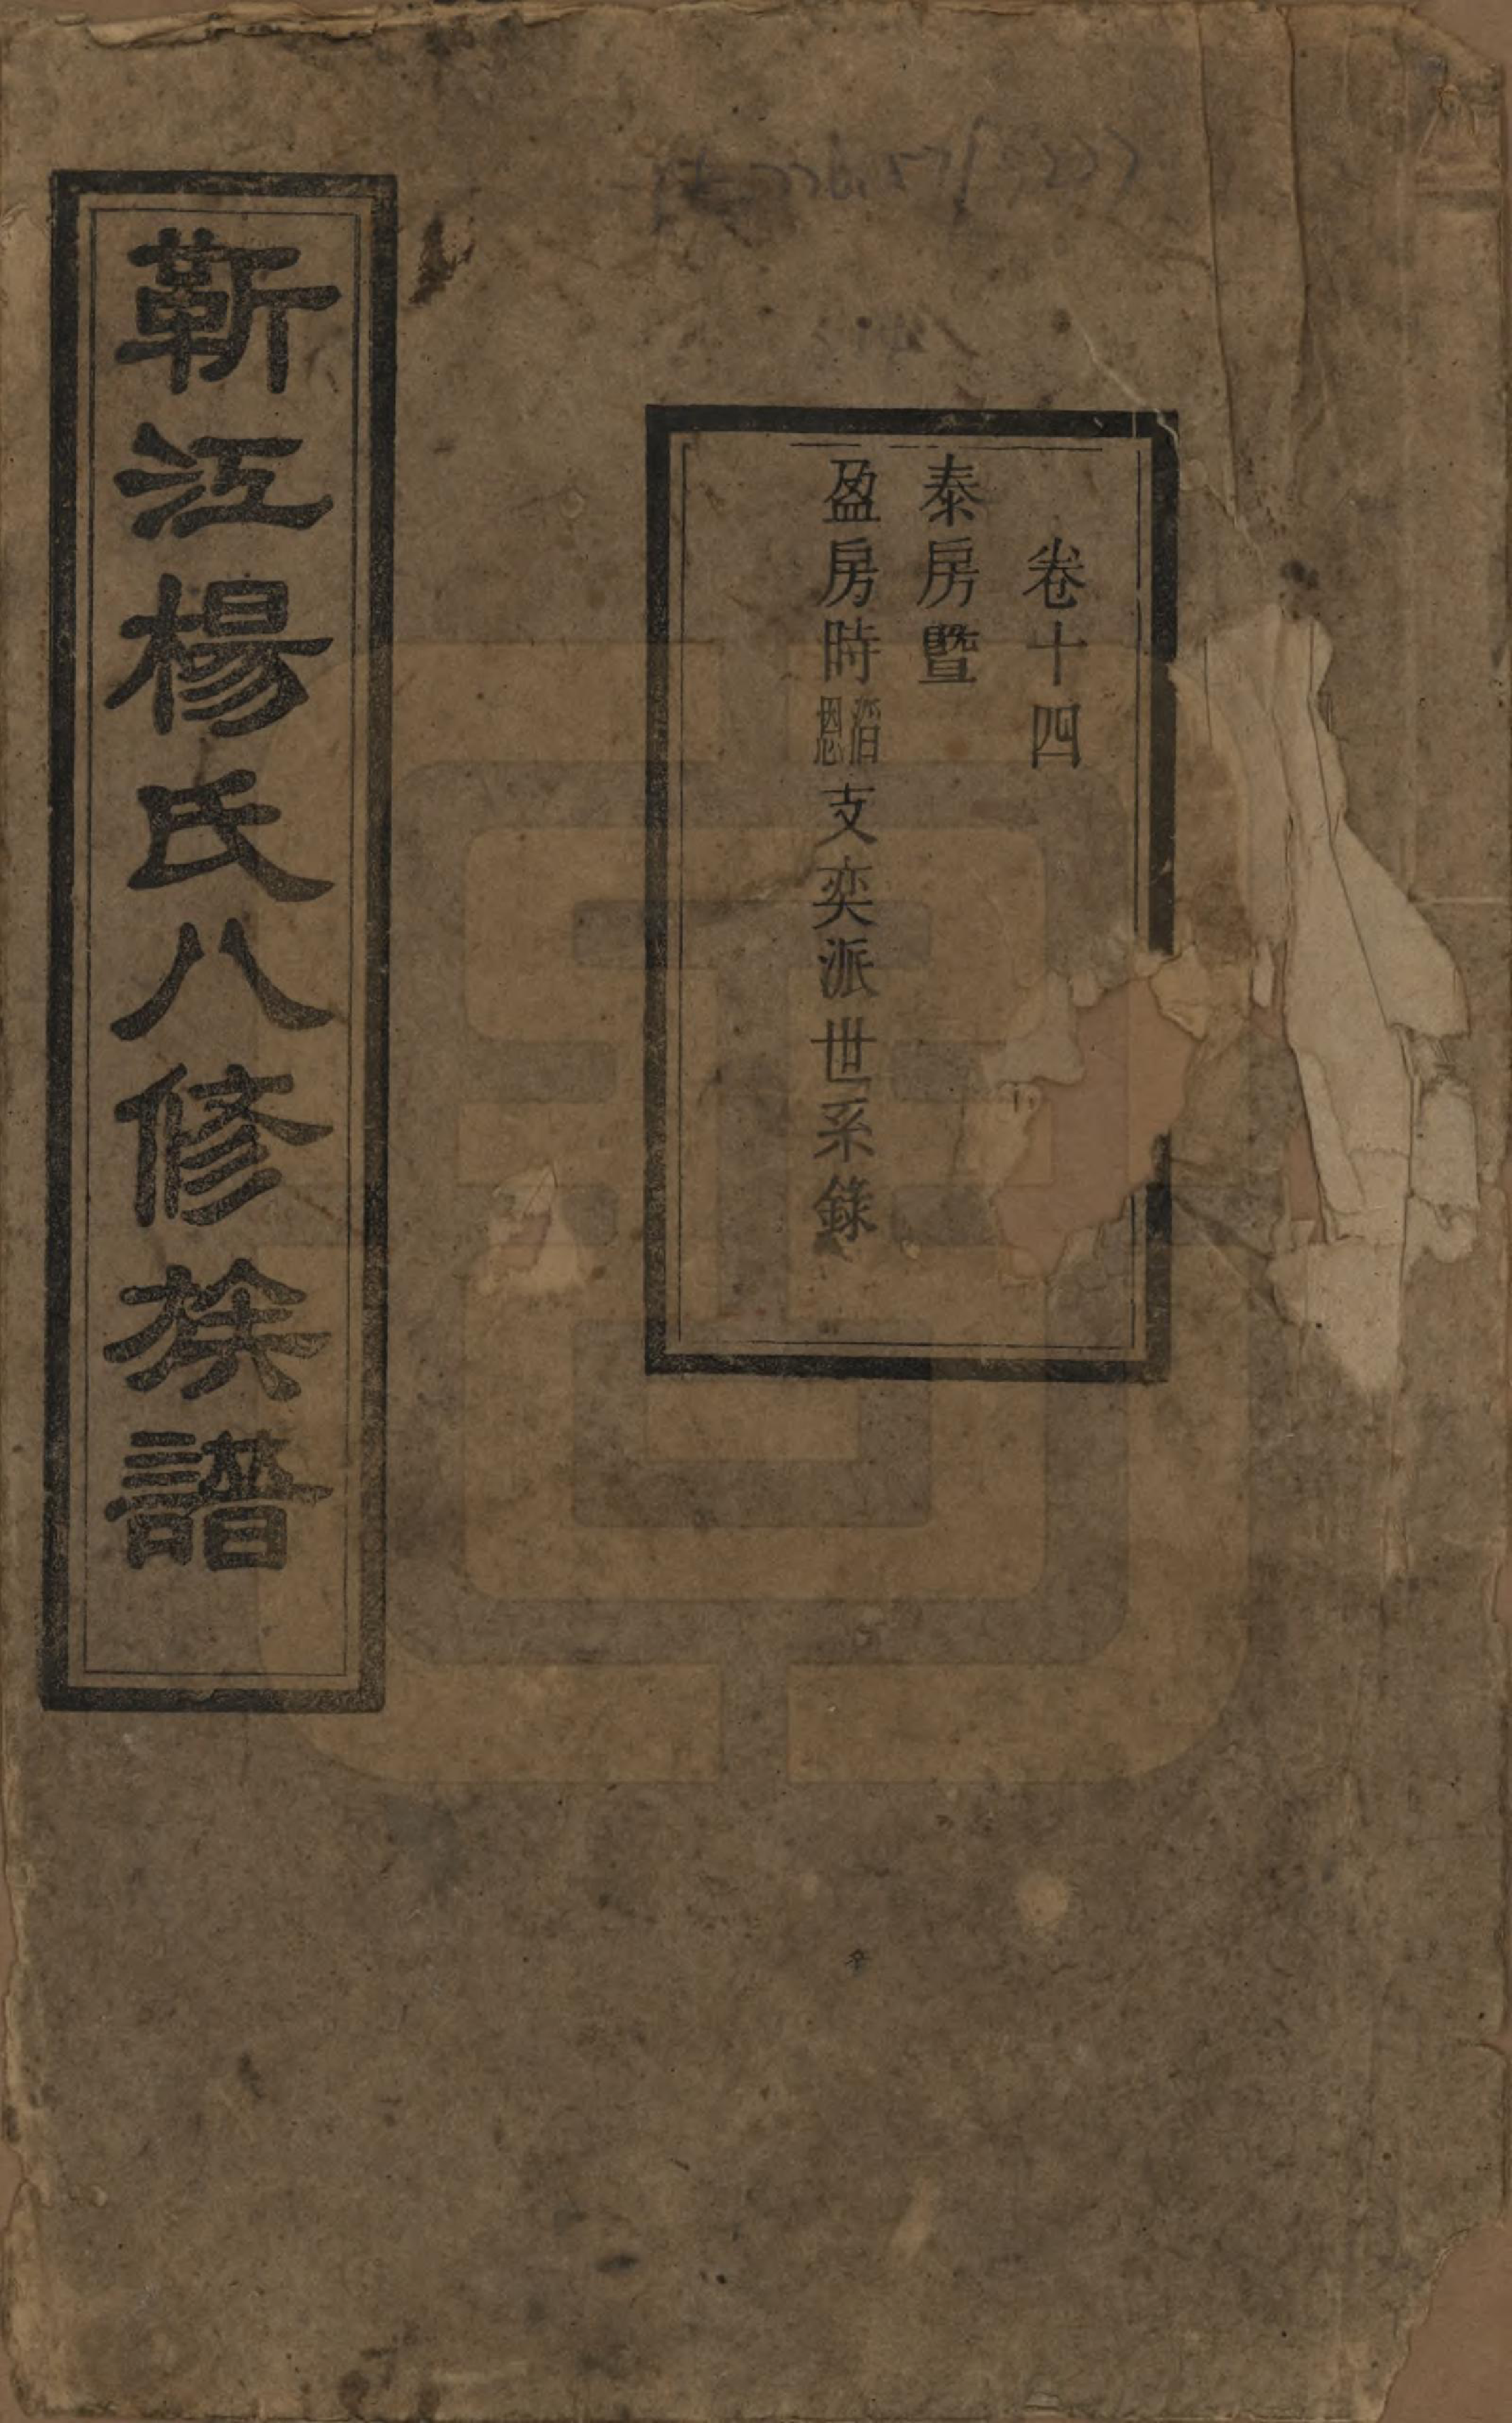 卷十四
泰房暨
盈房時滔恩支奕派世系錄
靳江楊氏八修族譜